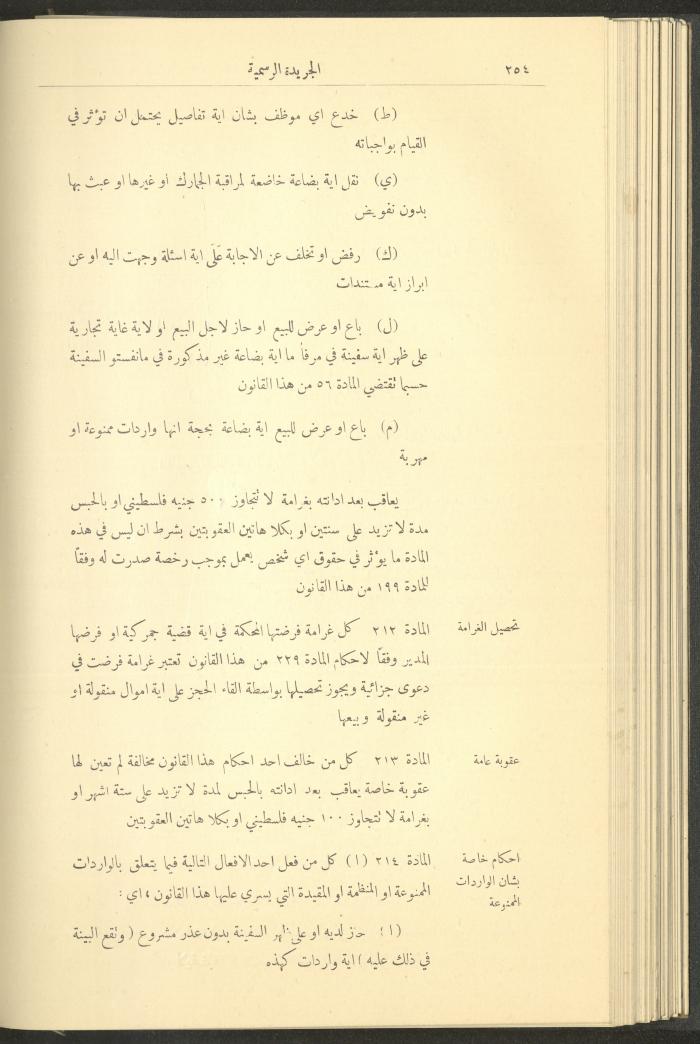 ٢٥٤
الجريدة الرسمية
(ط) خدع اي موظف بشان اية تفاصيل يحتمل ان تؤثر في
القيام بواجباته
(ي) نقل اية بضاعة خاضعة لمراقبة الجمارك او غيرها او عبث بها
بدون تفويض
(ك) رفض او تخلف عن الاجابة على اية اسئلة وجهت اليه او عن
ابراز اية مستندات
(ل) باع او عرض للبيع او حاز لاجل البيع او لاية غاية تجارية
على ظهر اية سفينة في مرفأ ما اية بضاعة غير مذكورة في مانفستو السفينة
حسبما تقتضي المادة ٥٦ من هذا القانون
(م) باع او عرض للبيع اية بضاعة بحجة انها واردات ممنوعة او
مهربة
يعاقب بعد ادانته بغرامة لا تتجاوز ٥٠٠ جنيه فلسطيني او بالحبس
مدة لا تزيد على سنتين او بكلا هاتين العقوبتين بشرط ان ليس في هذه
المادة ما يؤثر في حقوق اي شخص يعمل بموجب رخصة صدرت له وفقاً
للمادة ١٩٩ من هذا القانون
تحصيل الغرامة
المادة ٢١٢ كل غرامة فرضتها المحكمة في اية قضية جمركية او فرضها
المدير وفقاً لاحكام المادة ٢٢٩ من هذا القانون تعتبر غرامة فرضت في
دعوى جزائية ويجوز تحصيلها بواسطة القاء الحجز على اية اموال منقولة او
غير منقولة وبيعها
عقوبة عامة
المادة ٢١٣ كل من خالف احد احكام هذا القانون مخالفة لم تعين لها
عقوبة خاصة يعاقب بعد ادانته بالحبس لمدة لا تزيد على ستة اشهر او
بغرامة لا تتجاوز ١٠٠ جنيه فلسطيني او بكلا هاتين العقوبتين
احكام خاصة
بشان الواردات
الممنوعة
المادة ٢١٤ (١) كل من فعل احد الافعال التالية فيما يتعلق بالواردات
الممنوعة او المنظمة او المقيدة التي يسري عليها هذا القانون ، اي :
(ا) حاز لديه او على ظهر السفينة بدون عذر مشروع ( وتقع البينة
في ذلك عليه ) اية واردات كهذه